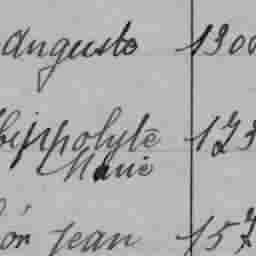 Auguste 1300
hippolyte 173
Marie
Jean 157